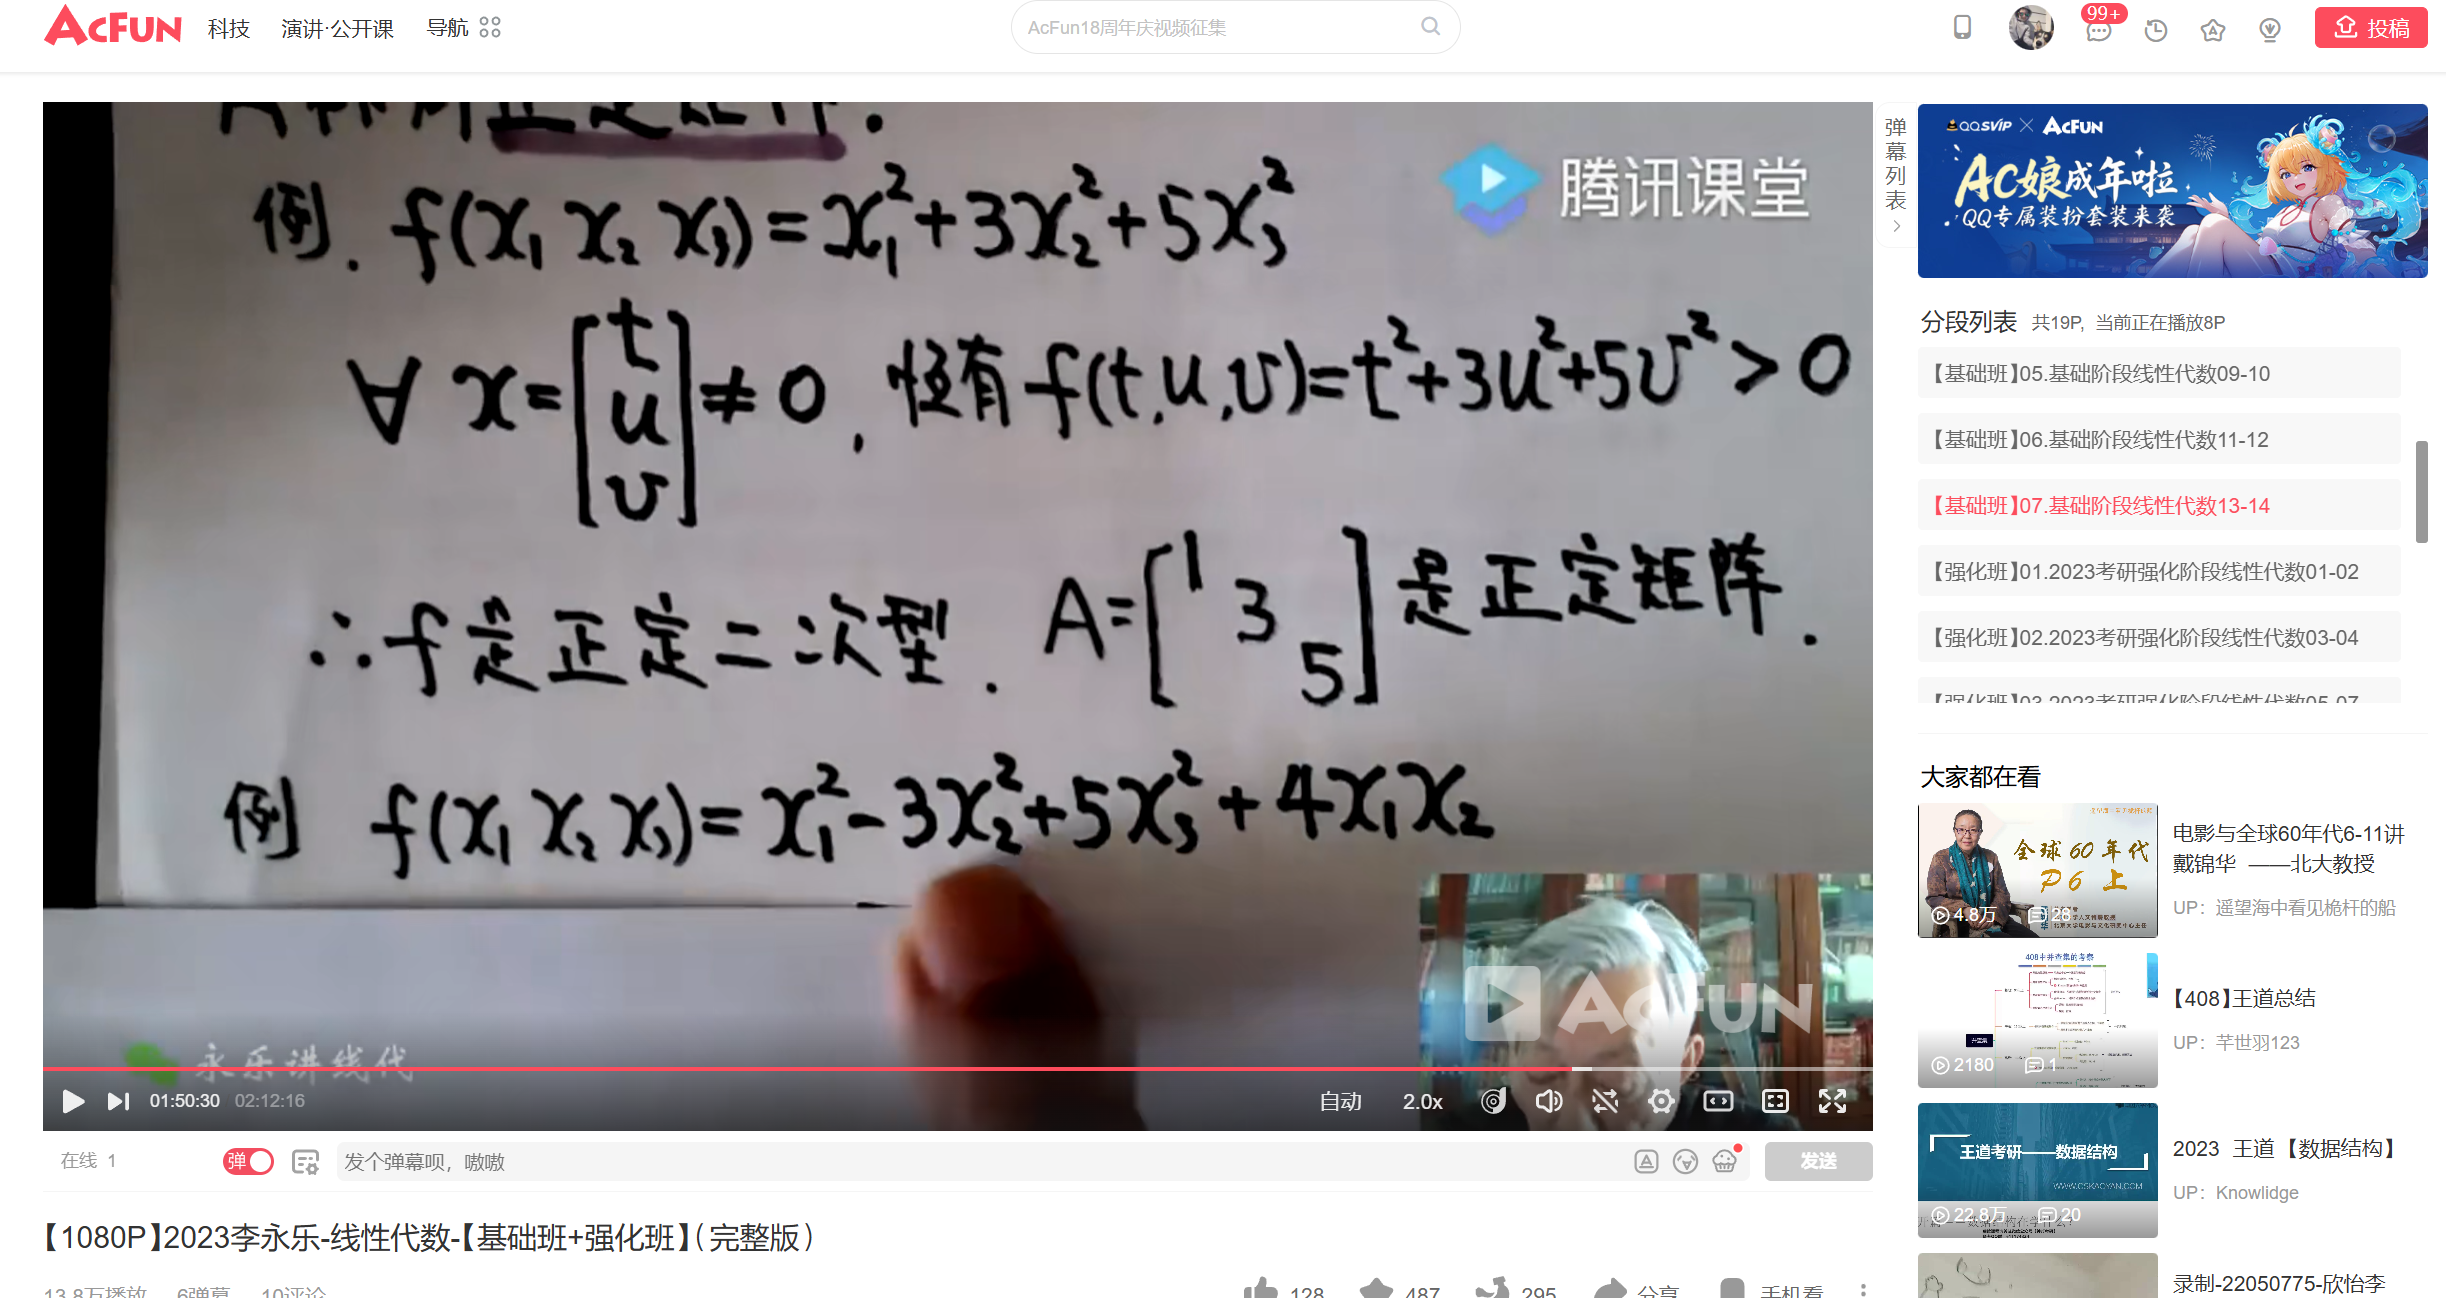 AcFUN 科技 演讲·公开课 导航 AcFun18周年庆视频征集 99+ 投稿
例. f(x₁ x₂ x₃)=x₁²+3x₂²+5x₃²
腾讯课堂
∀ x=[t u v]≠0, 恒有 f(t,u,v)=t²+3u²+5v²>0
∴f是正定二次型. A=[1 3 5]是正定矩阵.
例 f(x₁ x₂ x₃)=x₁²-3x₂²+5x₃²+4x₁x₂
AcFUN
永乐讲线代
01:50:30 02:12:16 自动 2.0x
在线 1 弹 发个弹幕呗，嗷嗷 发送
【1080P】2023李永乐-线性代数-【基础班+强化班】（完整版）
13.8万播放 6弹幕 10评论 128 487 295 分享 手机看
弹幕列表
QQSVIP × AcFUN
AC娘成年啦
QQ专属装扮套装来袭
分段列表 共19P, 当前正在播放8P
【基础班】05.基础阶段线性代数09-10
【基础班】06.基础阶段线性代数11-12
【基础班】07.基础阶段线性代数13-14
【强化班】01.2023考研强化阶段线性代数01-02
【强化班】02.2023考研强化阶段线性代数03-04
【强化班】03.2023考研强化阶段线性代数05-07
大家都在看
全球60年代
P6 上
4.8万 28
电影与全球60年代6-11讲
戴锦华 ——北大教授
UP：遥望海中看见桅杆的船
408中并查集的考察
2180 1
【408】王道总结
UP：芊世羽123
王道考研——数据结构
WWW.CSKAOYAN.COM
22.8万 20
2023 王道【数据结构】
UP：Knowlidge
录制-22050775-欣怡李